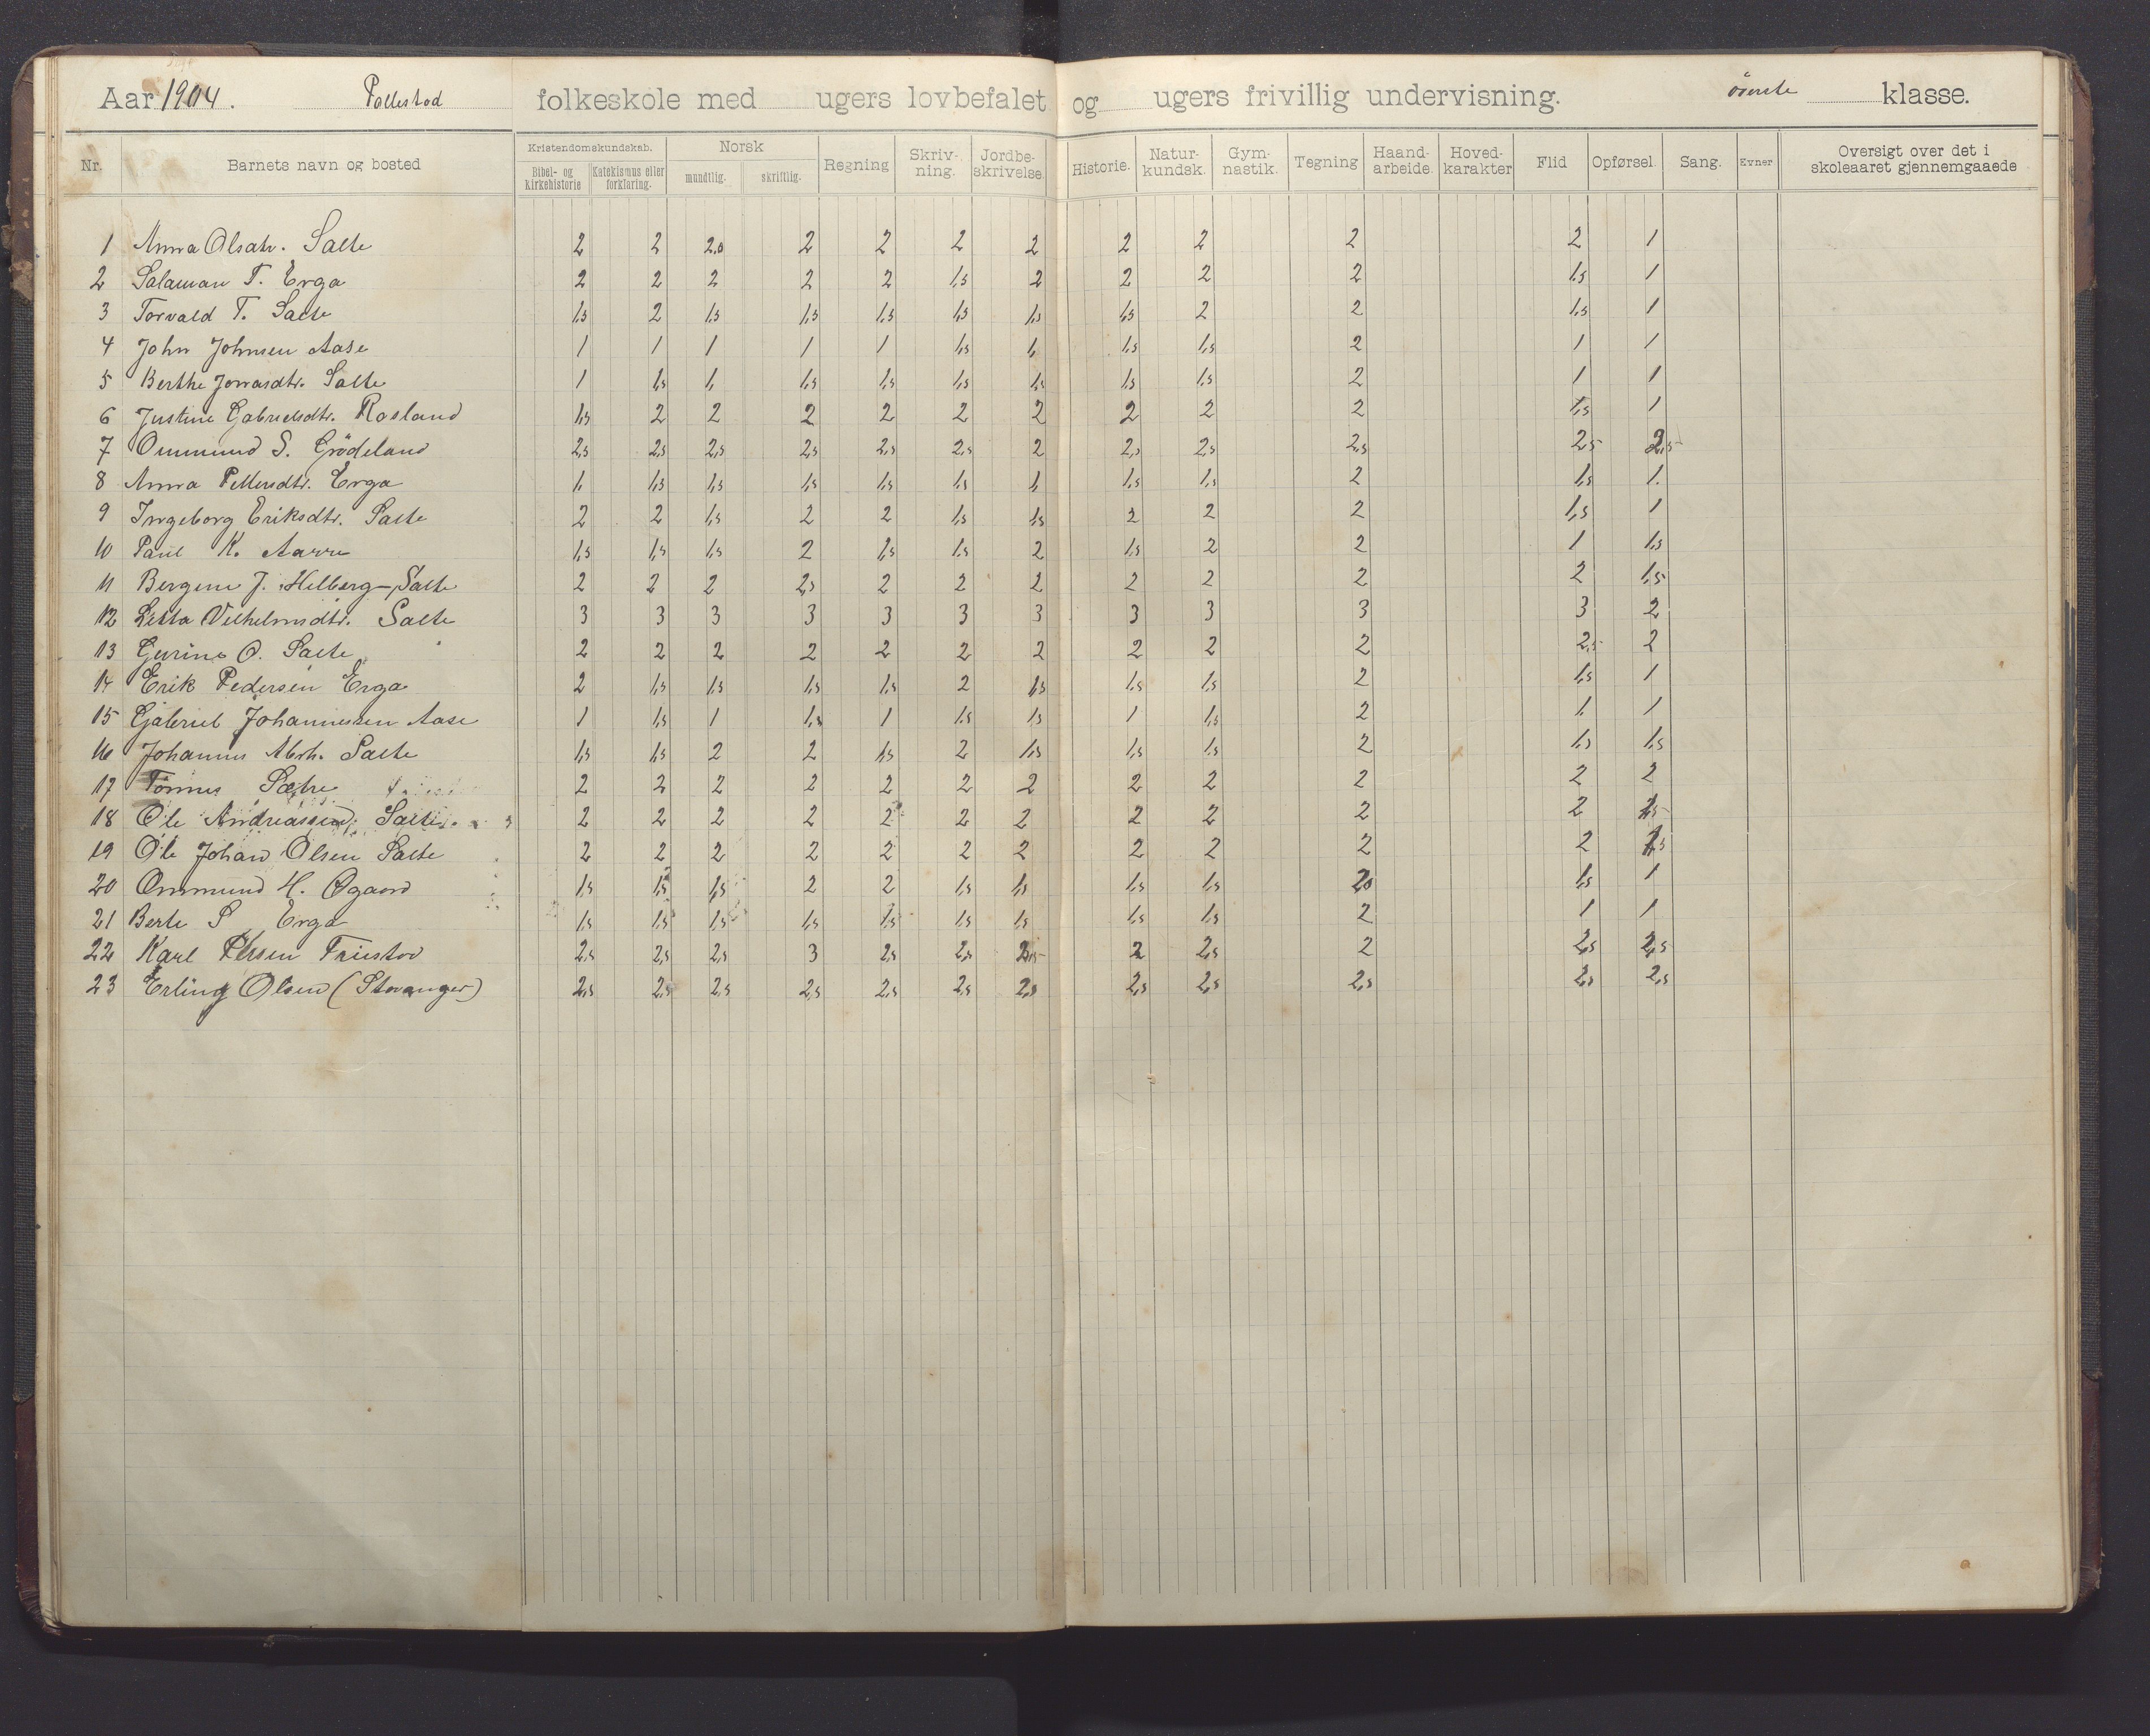 Aar 1904. Pollestad folkeskole med ugers lovbefalet og ugers frivillig undervisning. øverste klasse.
Nr. Barnets navn og bosted Kristendomskundskab. Bibel- og kirkehistorie Katekismus eller forklaring. Norsk mundtlig. skriftlig. Regning Skriv-ning. Jordbe-skrivelse. Historie. Natur-kundsk. Gym-nastik. Tegning Haand-arbeide. Hoved-karakter Flid Opførsel. Sang. Evner Oversigt over det i skoleaaret gjennemgaaede
1 Anna Olsdtr. Salte 2 2 2,0 2 2 2 2 2 2 2 2 1
2 Salaman T. Erga 2 2 2 2 2 1,5 2 2 2 2 1,5 1
3 Torvald T. Salte 1,5 2 1,5 1,5 1,5 1,5 1,5 1,5 2 2 1,5 1
4 John Johnsen Aase 1 1 1 1 1 1,5 1, 1,5 1,5 2 1 1
5 Berthe Jonasdtr. Salte 1 1,5 1, 1,5 1,5 1,5 1,5 1,5 1,5 2 1 1
6 Justine Gabrielsdtr. Rosland 1,5 2 2 2 2 2 2 2 2 2 1,5 1
7 Ommund S. Grödeland 2,5 2,5 2,5 2,5 2,5 2,5 2 2,5 2,5 2,5 2,5 2,5
8 Anna Pettersdtr. Erga 1, 1,5 1,5 1,5 1,5 1,5 1, 1,5 1,5 2 1,5 1.
9 Ingeborg Eriksdtr. Salte 2 2 1,5 2 2 1,5 1,5 2 2 2 1,5 1
10 Paul K. Aarre 1,5 1,5 1,5 2 1,5 1,5 2 1,5 2 2 1 1,5
11 Bergine J. Helberg-Salte 2 2 2 2,5 2 2 2 2 2 2 2 1,5
12 Letta Vilhelmsdtr. Salte 3 3 3 3 3 3 3 3 3 3 3 2
13 Gurine O. Salte 2 2 2 2 2 2 2 2 2 2 2,5 2
14 Erik Pedersen Erga 2 1,5 1,5 1,5 1,5 2 1,5 1,5 1,5 2 1,5 1
15 Gabriel Johannessen Aase 1 1,5 1 1,5 1 1,5 1,5 1 1,5 2 1, 1
16 Johannes Abrh. Salte 1,5 1,5 2 2 1,5 2 1,5 1,5 1,5 2 1,5 1,5
17 Tönnes Sætre 2 2 2 2 2 2 2 2 2 2 2 2
18 Ole Andreassen Salte 2 2 2 2 2 2 2 2 2 2 2
19 Ole Johan Olsen Salte 2 2 2 2 2 2 2 2 2 2 2
20 Ommund H. Øgaard 1,5 1,5 1,5 2 2 1,5 1,5 1,5 1,5 1,5 1
21 Berte S Erga 1,5 1,5 1,5 1,5 1,5 1,5 1,5 1,5 1,5 2 1 1
22 Karl Friestad 2,5 2,5 2,5 3 2,5 2,5 2,5 2 2,5 2 2,5 2,5
23 Erling Olsen (Stavanger) 2,5 2,5 2,5 2,5 2,5 2,5 2,5 2,5 2,5 2,5 2,5 2,5